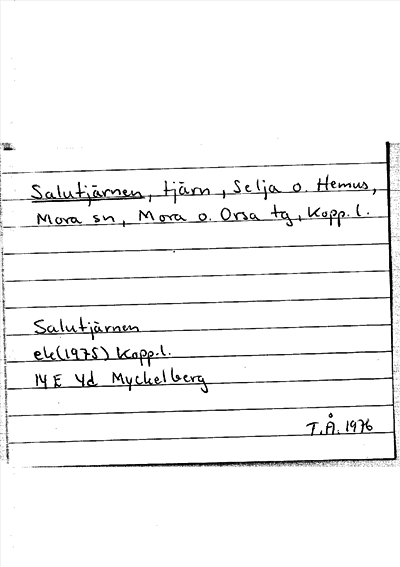 Salutjärnen, tjärn, Selja o. Hemus,
Mora sn, Mora o. Orsa tg, Kopp. l.
Salutjärnen
ek (1975) Kopp. l.
14 E 4d Myckelberg
T.Å. 1976